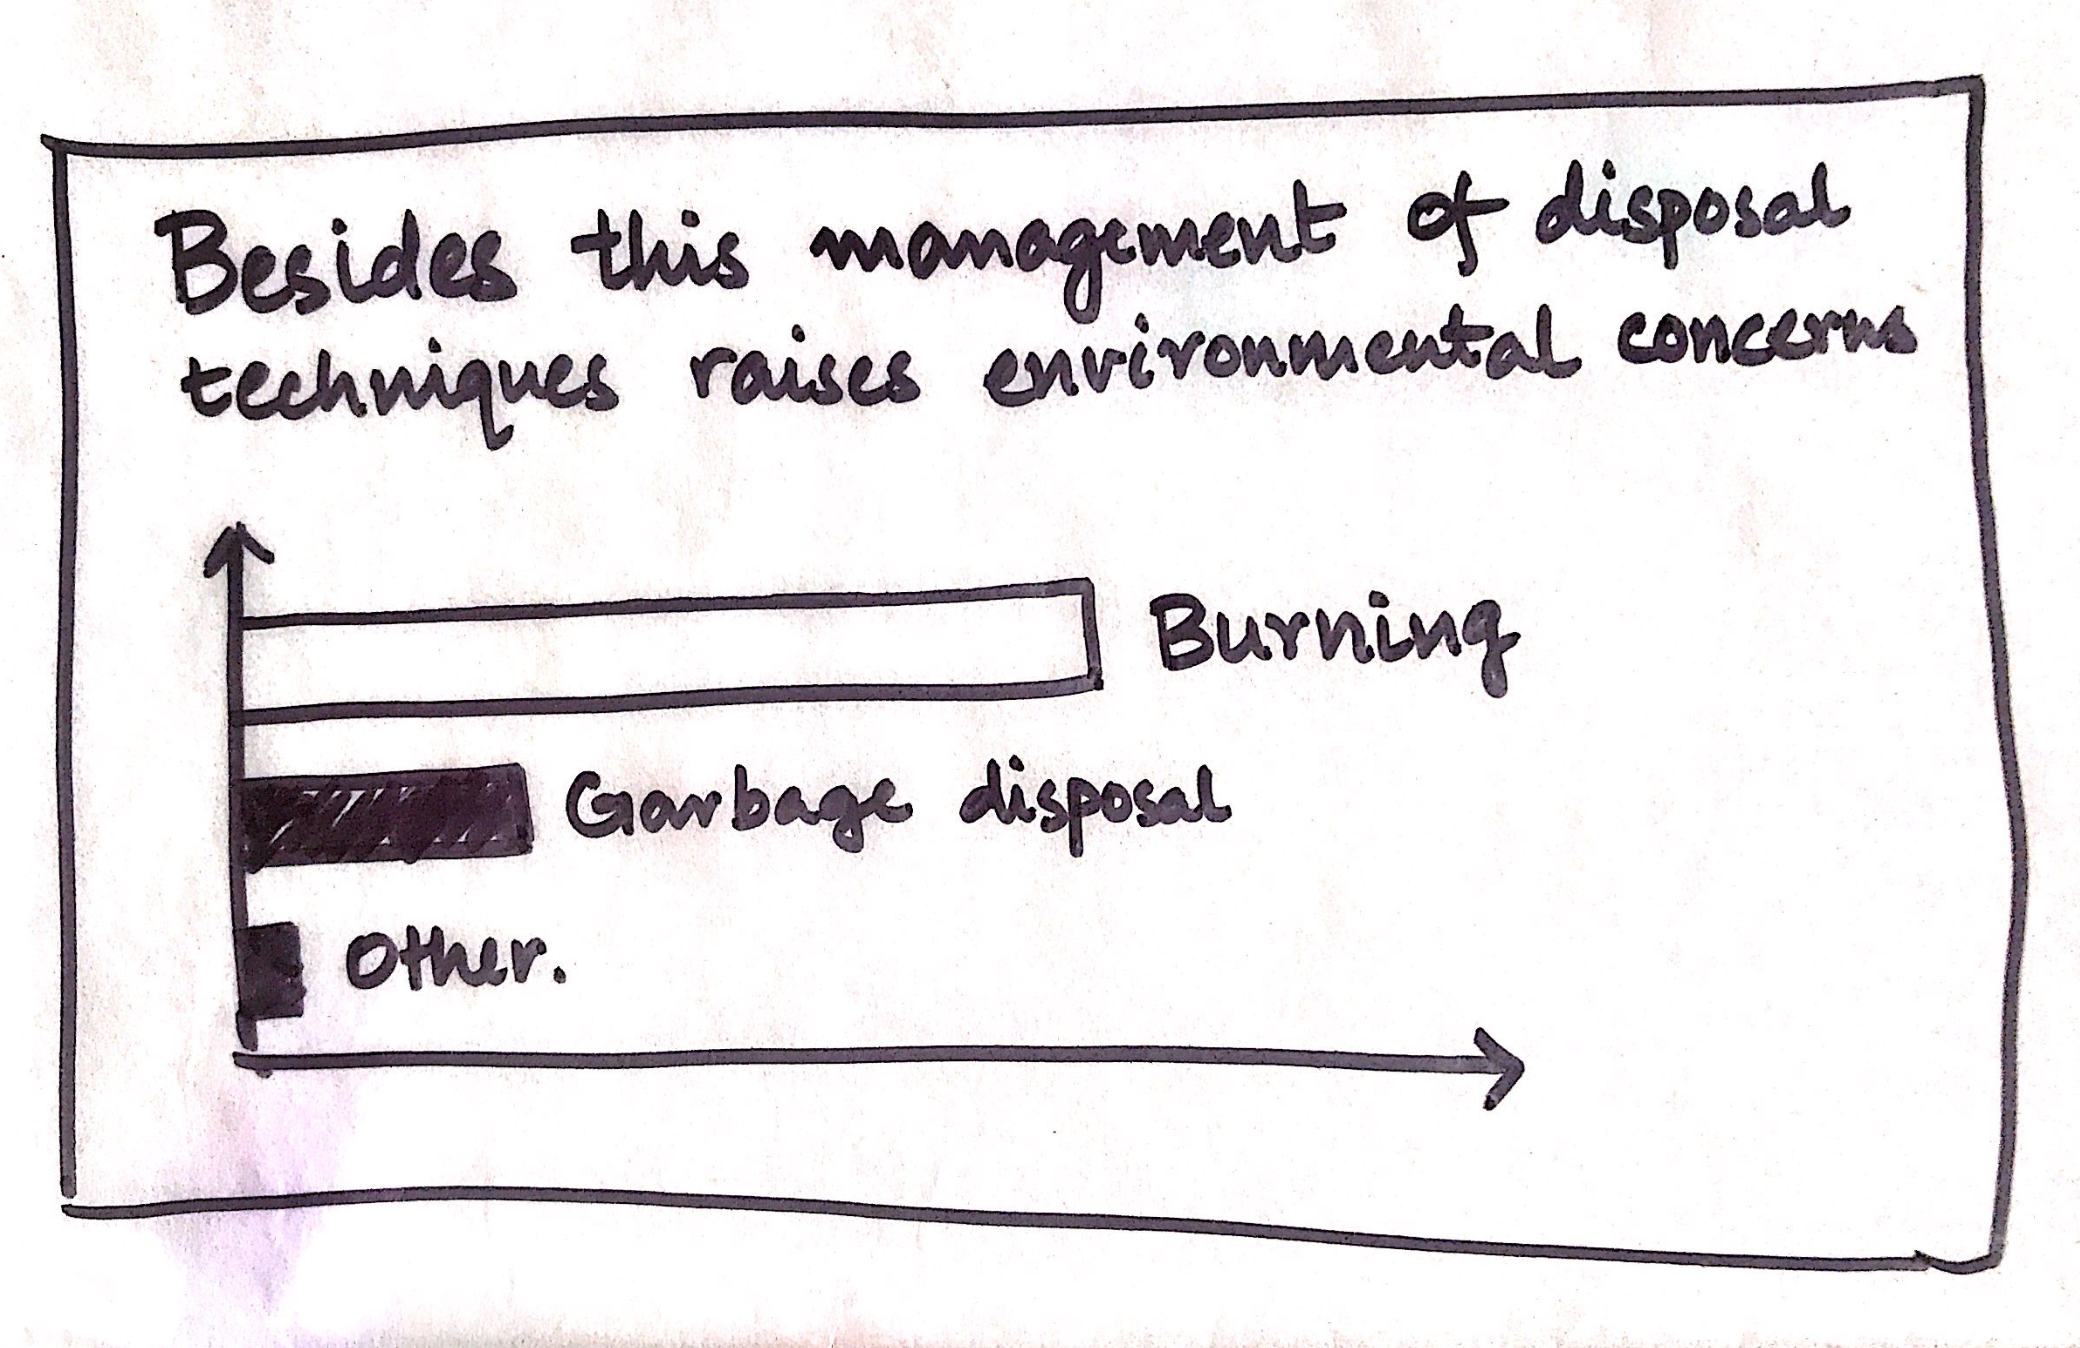 Besides this management of disposal
techniques raises environmental concerns
Burning
Garbage disposal
Other.